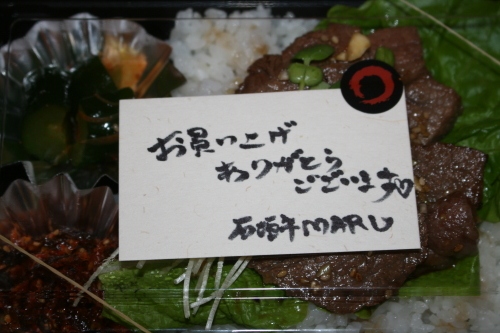 お買い上げ
ありがとう
ございます
石垣牛MARU